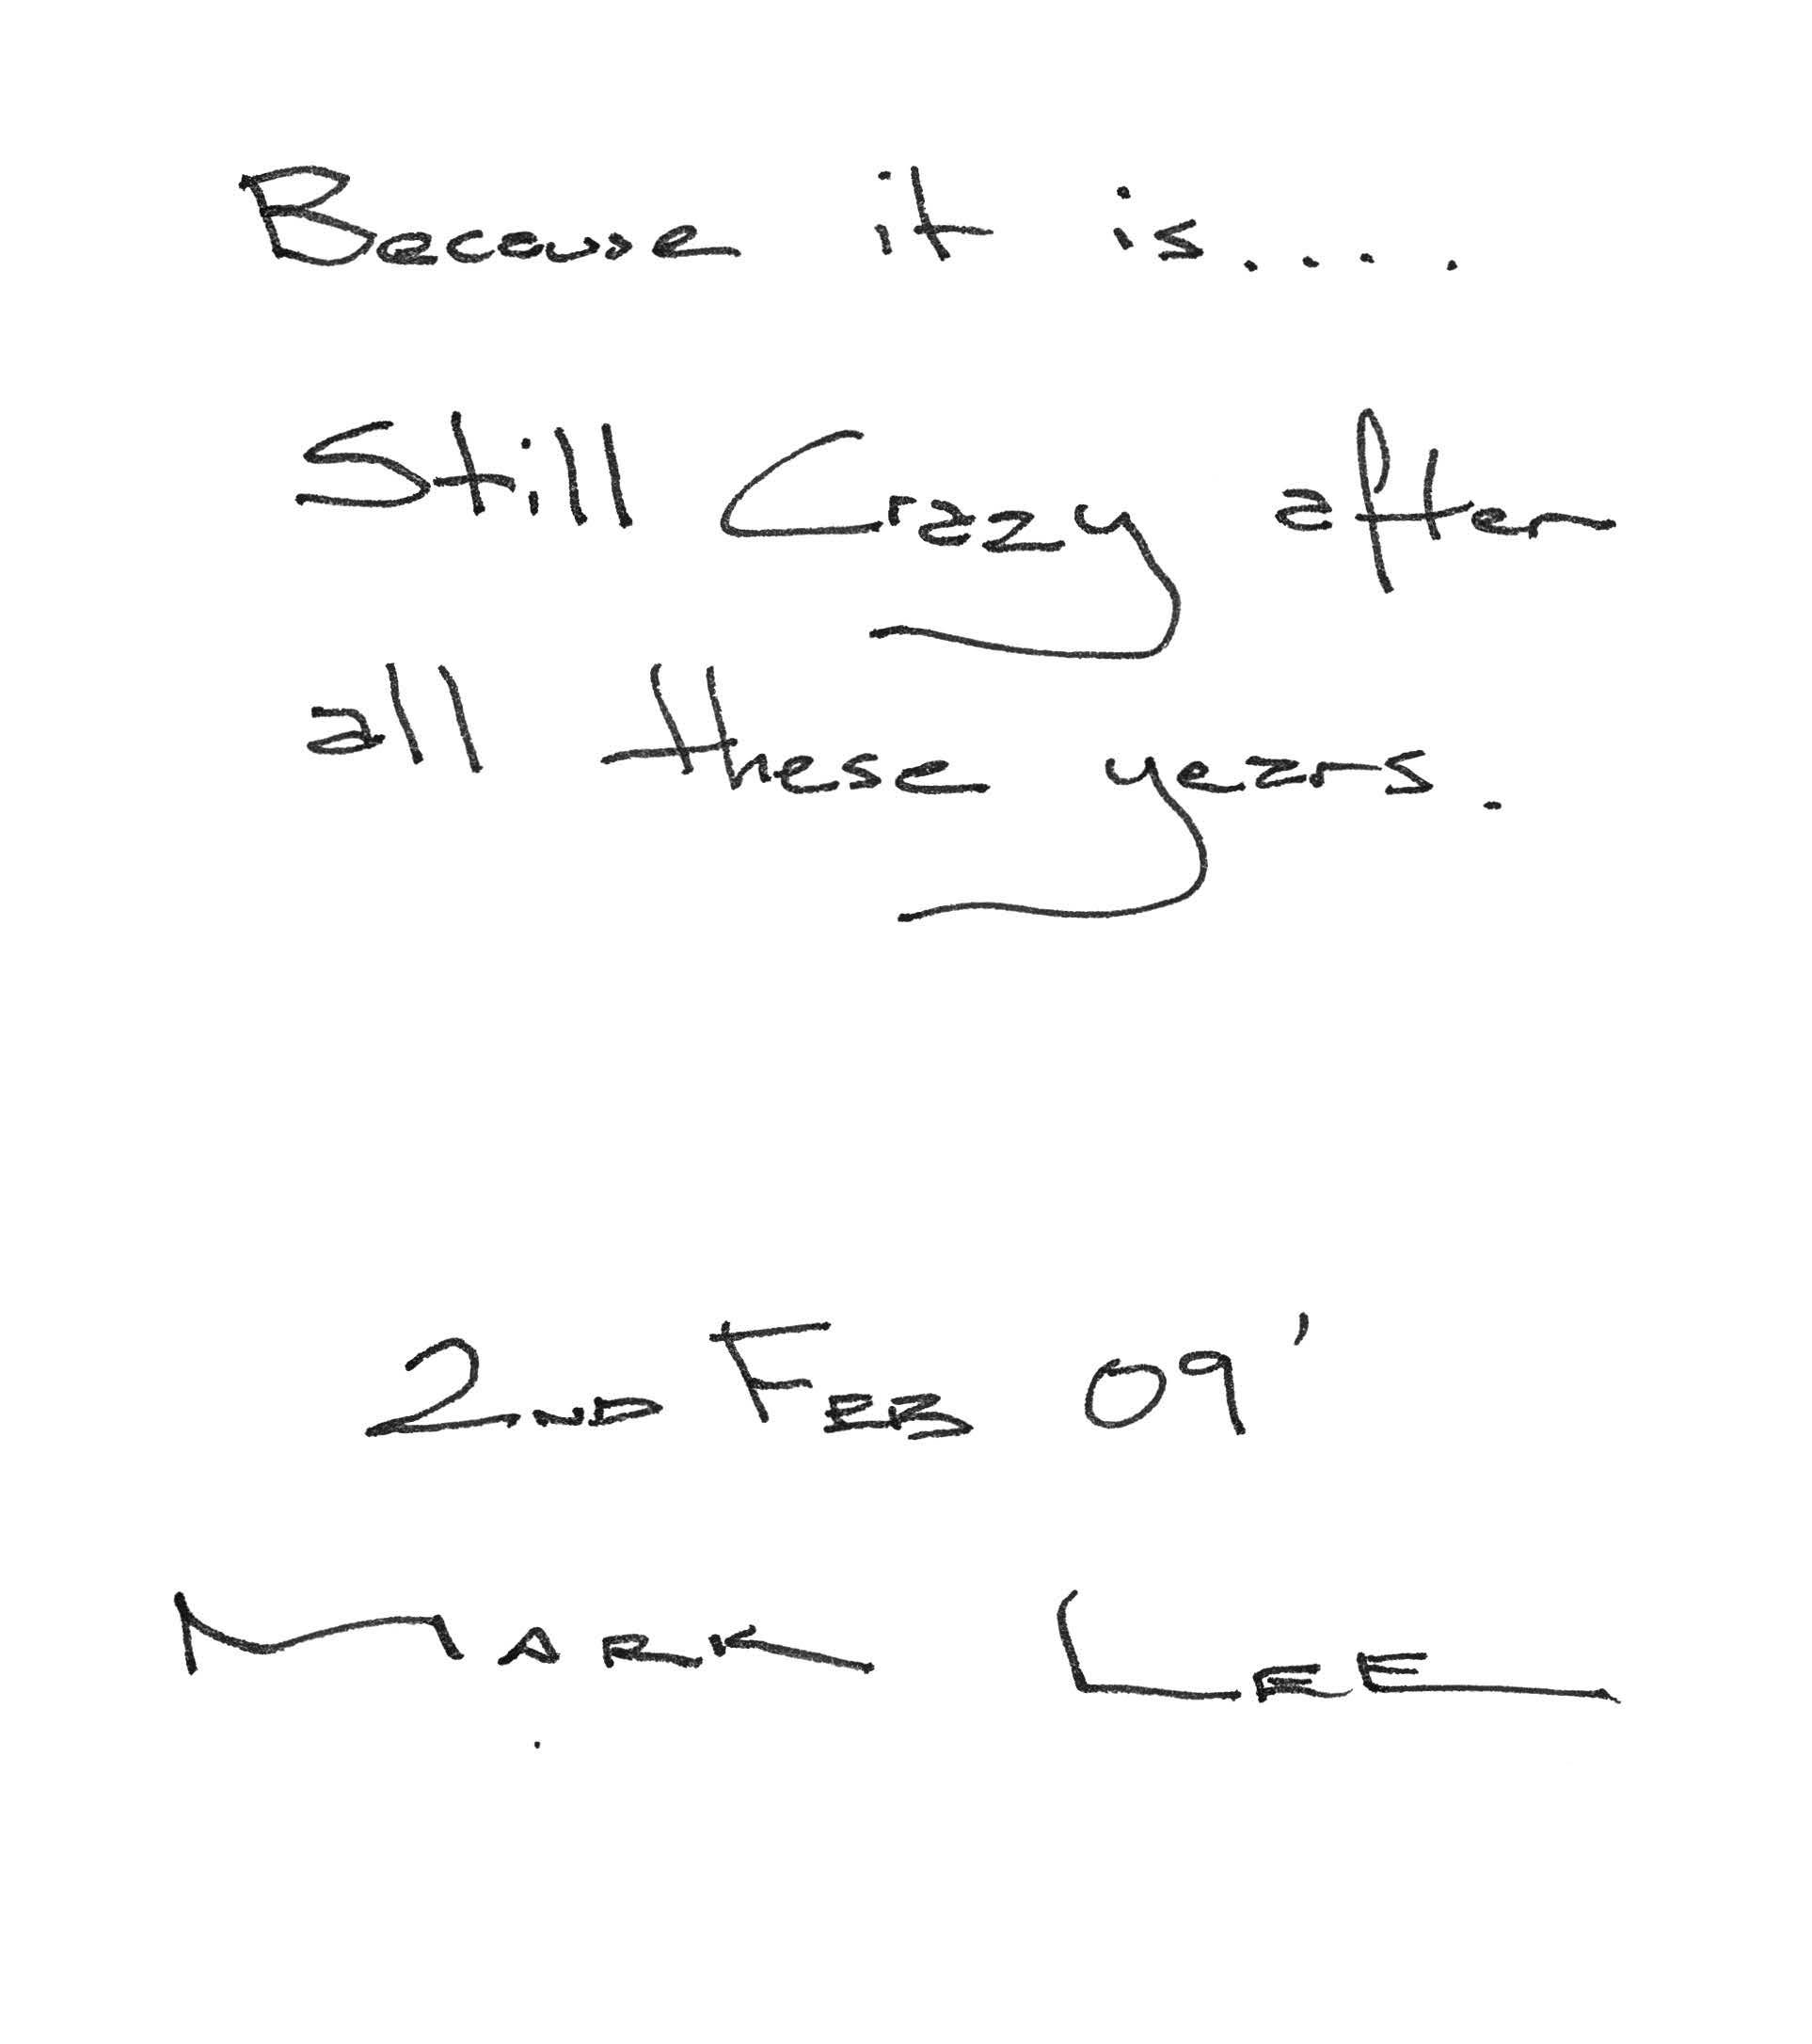 Because it is....
Still Crazy after
all these years.
2ND FEB 09'
MARK LEE